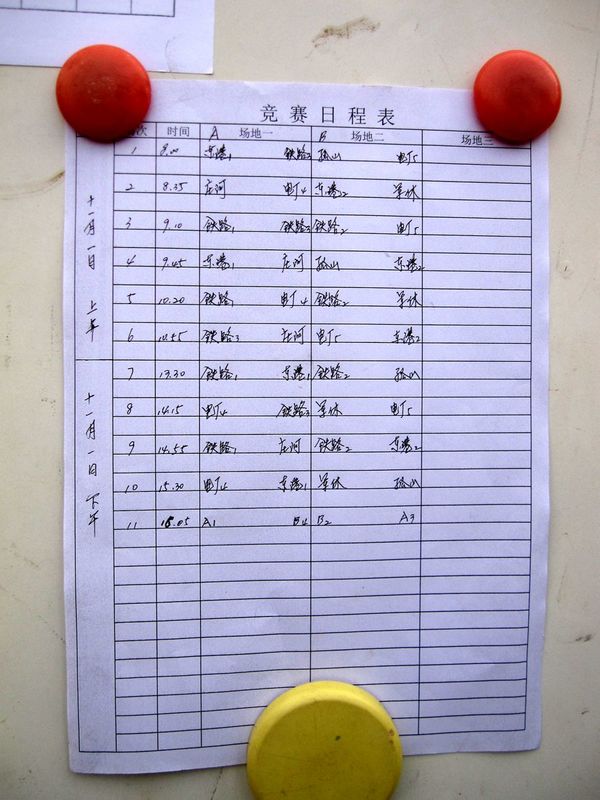 竞赛日程表
场次 时间 A 场地一 B 场地二 场地三
十一月一日 上午
1 8.00 东港1 铁路2 孤山 电厂5
2 8.35 庄河 电厂4 东港2 军休
3 9.10 铁路1 铁路3 铁路2 电厂5
4 9.45 东港1 庄河 孤山 东港2
5 10.20 铁路1 电厂4 铁路2 军休
6 10.55 铁路3 庄河 电厂5 东港2
十一月一日 下午
7 13.30 铁路1 东港1 铁路2 孤山
8 14.15 电厂4 铁路3 军休 电厂5
9 14.55 铁路1 庄河 铁路2 东港2
10 15.30 电厂4 东港1 军休 孤山
11 16.05 A1 B4 B2 A3